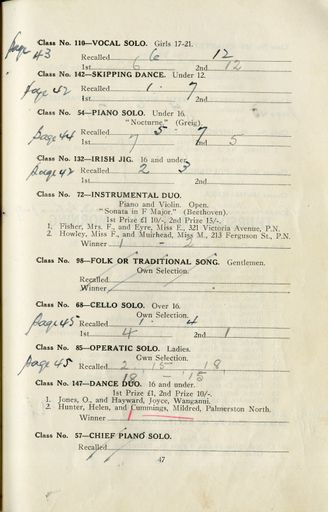 Page 43
Class No. 110—VOCAL SOLO. Girls 17-21.
Recalled 6 12
1st 6 2nd 12
Class No. 142—SKIPPING DANCE. Under 12.
Page 42
Recalled 1. 7
1st 2nd
Class No. 54—PIANO SOLO. Under 16.
"Nocturne." (Greig).
Page 44
Recalled 5. 7
1st 7 2nd 5
Class No. 132—IRISH JIG. 16 and under.
Page 42
Recalled 2 3
1st 2nd
Class No. 72—INSTRUMENTAL DUO.
Piano and Violin. Open.
"Sonata in F Major." (Beethoven).
1st Prize £1 10/-, 2nd Prize 15/-.
1. Fisher, Mrs. F., and Eyre, Miss E., 321 Victoria Avenue, P.N.
2. Howley, Miss F., and Muirhead, Miss M., 213 Ferguson St., P.N.
Winner 1 - 2
Class No. 98—FOLK OR TRADITIONAL SONG. Gentlemen.
Own Selection.
Recalled
Winner
Class No. 68—CELLO SOLO. Over 16.
Own Selection.
Page 45
Recalled 1. 4
1st 4 2nd 1
Class No. 85—OPERATIC SOLO. Ladies.
Own Selection.
Page 45
Recalled 2 15 18
18 - 15
Class No. 147—DANCE DUO. 16 and under.
1st Prize £1, 2nd Prize 10/-.
1. Jones, O., and Hayward, Joyce, Wanganui.
2. Hunter, Helen, and Cummings, Mildred, Palmerston North.
Winner 1
Class No. 57—CHIEF PIANO SOLO.
Recalled
47